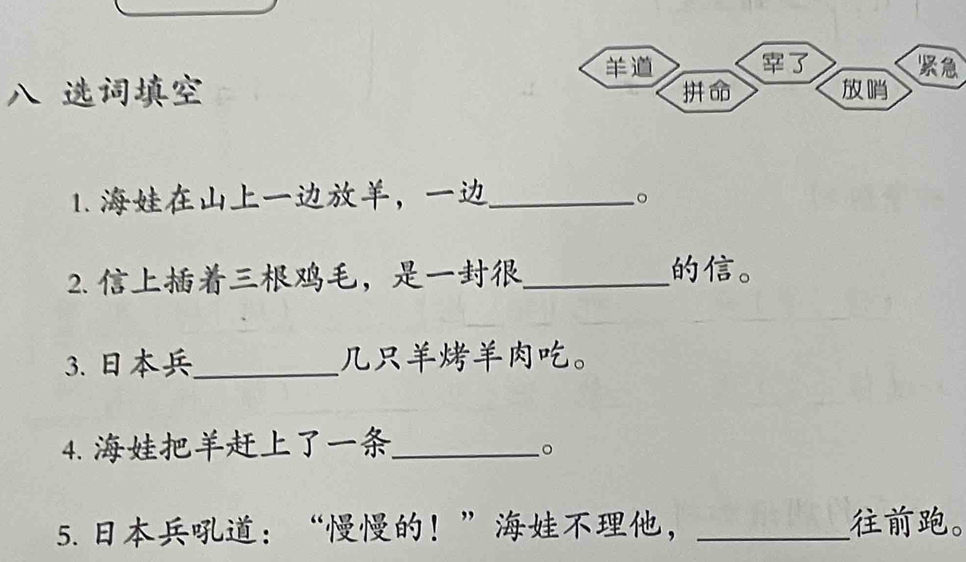 羊道 宰了 紧急
八 选词填空 拼命 放哨
1. 海娃在山上一边放羊，一边__________。
2. 信上插着三根鸡毛，是一封很__________的信。
3. 日本兵__________几只羊烤羊肉吃。
4. 海娃把羊赶上了一条__________。
5. 日本兵吼道：“慢慢的！”海娃不理他，__________往前跑。